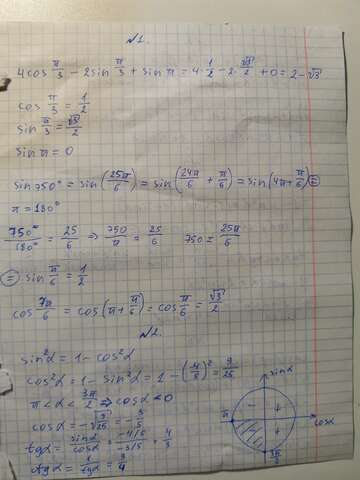 №1.
4cos π/3 - 2sin π/3 + sin π = 4·1/2 - 2·√3/2 + 0 = 2 - √3
cos π/3 = 1/2
sin π/3 = √3/2
sin π = 0
sin 750° = sin(25π/6) = sin(24π/6 + π/6) = sin(4π + π/6) =
π = 180°
750°/180° = 25/6 ⇒ 750/π = 25/6 750 = 25π/6
= sin π/6 = 1/2
cos 7π/6 = cos(π + π/6) = cos π/6 = √3/2
№2.
sin²α = 1 - cos²α
cos²α = 1 - sin²α = 1 - (4/5)² = 9/25
π < α < 3π/2 ⇒ cosα < 0
cosα = -√9/25 = -3/5
tgα = sinα/cosα = -4/5/-3/5 = 4/3
ctgα = 1/tgα = 3/4
sinα
- +
π
cosα
+
3π/2